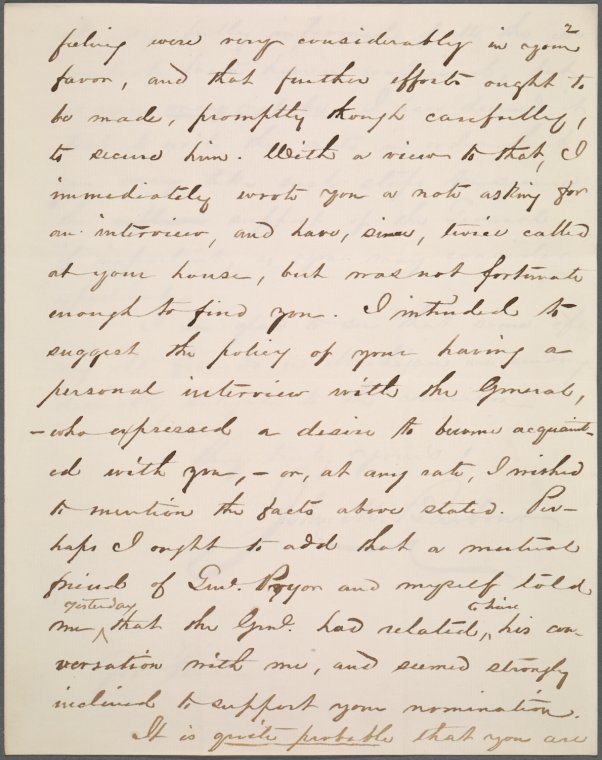 2
feeling were very considerably in your
favor, and that further efforts ought to
be made, promptly though carefully,
to secure him. With a view to that, I
immediately wrote you a note asking for
an interview, and have, since, twice called
at your house, but was not fortunate
enough to find you. I intended to
suggest the policy of your having a
personal interview with the General,
- who expressed a desire to become acquaint-
ed with you, - or, at any rate, I wished
to mention the facts above stated. Per-
haps I ought to add that a mutual
friend of Genl. Pryor and myself told
yesterday to him
me, that the Genl. had related, his con-
versation with me, and seemed strongly
inclined to support your nomination.
It is quite probable that you are